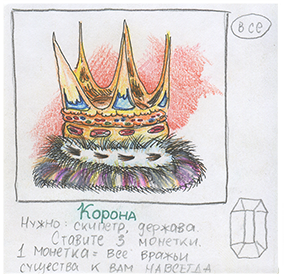 все
Корона
Нужно: скипетр, держава.
Ставите 3 монетки.
1 монетка = все вражьи
существа к вам навсегда